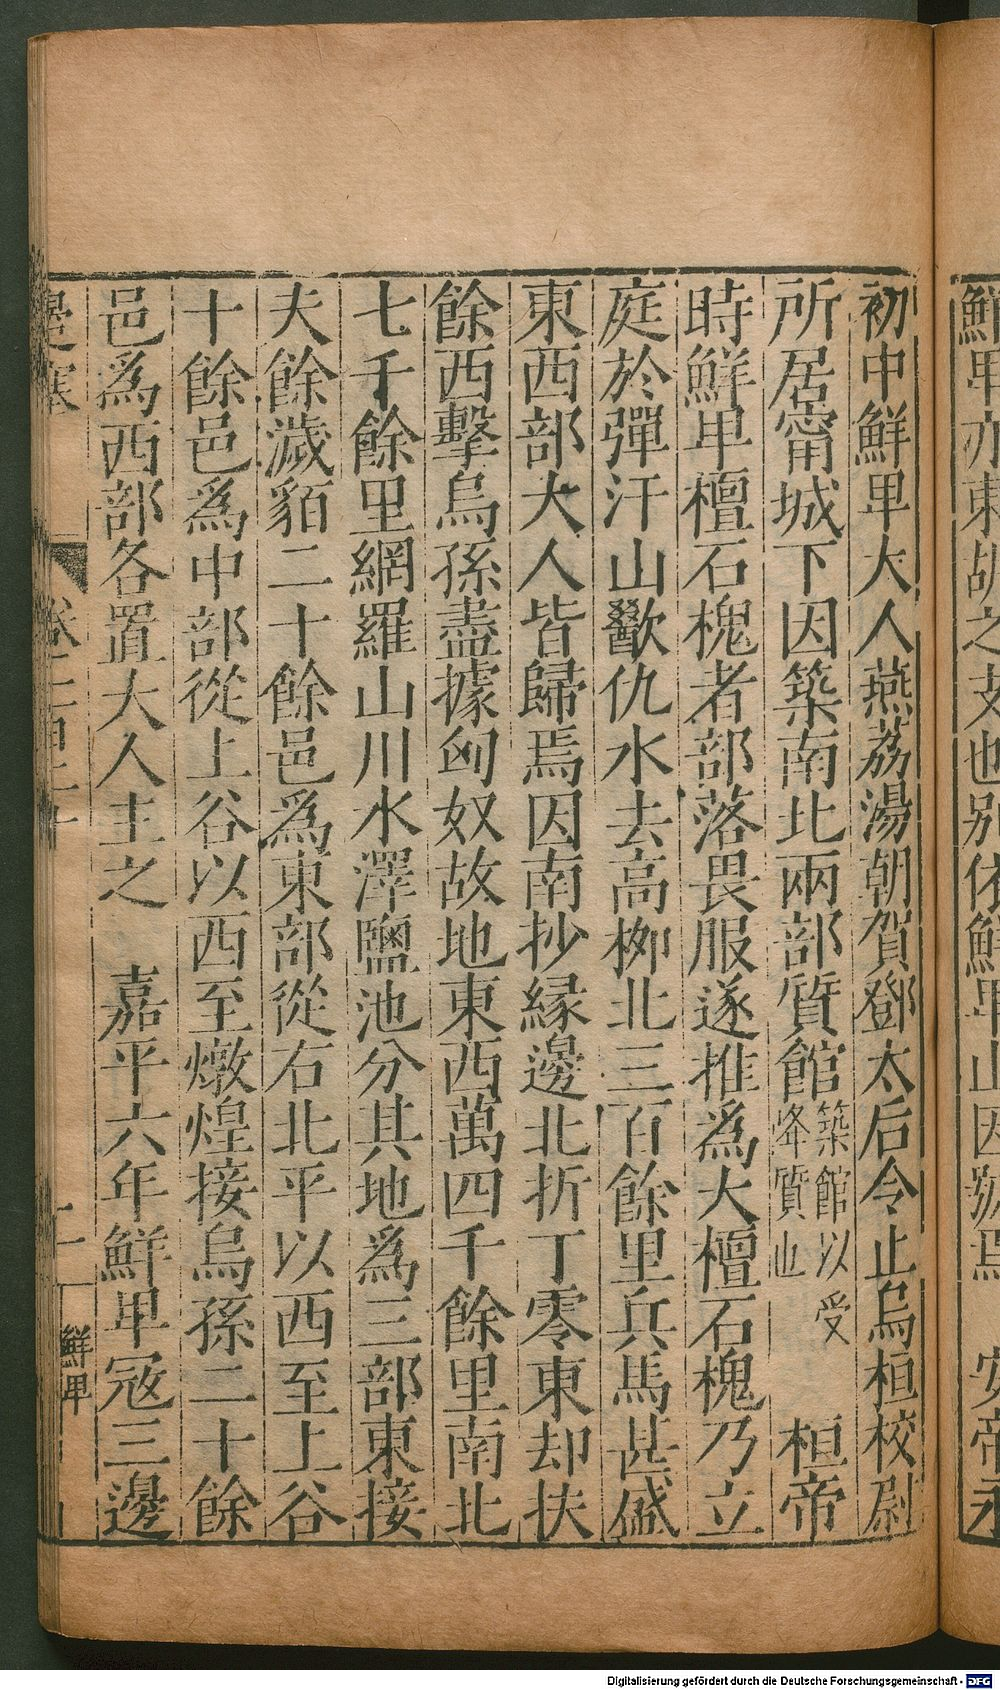 鮮卑亦東胡之支也別依鮮卑山因號焉 安帝永
初中鮮卑大人燕荔湯朝賀鄧太后令止烏桓校尉
所居甯城下因築南北兩部質館築館以受
降質也 桓帝
時鮮卑檀石槐者部落畏服遂推爲大檀石槐乃立
庭於彈汗山歠仇水去高柳北三百餘里兵馬甚盛
東西部大人皆歸焉因南抄緣邊北折丁零東却扶
餘西擊烏孫盡據匈奴故地東西萬四千餘里南北
七千餘里網羅山川水澤鹽池分其地爲三部東接
夫餘濊貊二十餘邑爲東部從右北平以西至上谷
十餘邑爲中部從上谷以西至燉煌接烏孫二十餘
邑爲西部各置大人主之 嘉平六年鮮卑寇三邊
邊塞
鮮卑
Digitalisierung gefördert durch die Deutsche Forschungsgemeinschaft - DFG